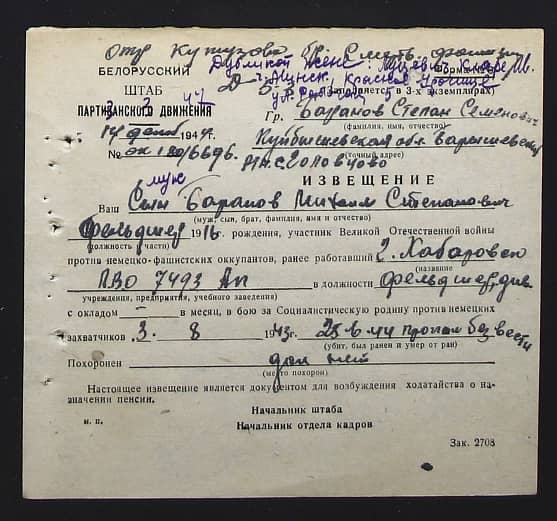 Отр Кутузова бр. Смерть фашизму
Дубликат жене:
г. Минск, Красное Урочище
БЕЛОРУССКИЙ
ШТАБ
ПАРТИЗАНСКОГО ДВИЖЕНИЯ
(Заполняется в 3-х экземплярах)
Гр. Баранов Степан Семенович
(фамилия, имя, отчество)
194
№ 6696.
Куйбышевская обл.
(точный адрес)
ИЗВЕЩЕНИЕ
муж
Ваш Сын Баранов Михаил Степанович
(муж, сын, брат, фамилия, имя и отчество)
Фельдшер 1916 рождения, участник Великой Отечественной войны
(должность в части)
против немецко-фашистских оккупантов, ранее работавший г. Хабаровск
(название
ПВО 7493 Ап в должности фельдшер див.
учреждения, предприятия, учебного заведения)
с окладом — в месяц, в бою за Социалистическую родину против немецких
захватчиков 3. 8 1943г. пропал без вести
(убит, был ранен и умер от ран)
Похоронен дан нет
(место похорон)
Настоящее извещение является документом для возбуждения ходатайства о на-
значении пенсии.
Начальник штаба
м. п. Начальник отдела кадров
Зак. 2708